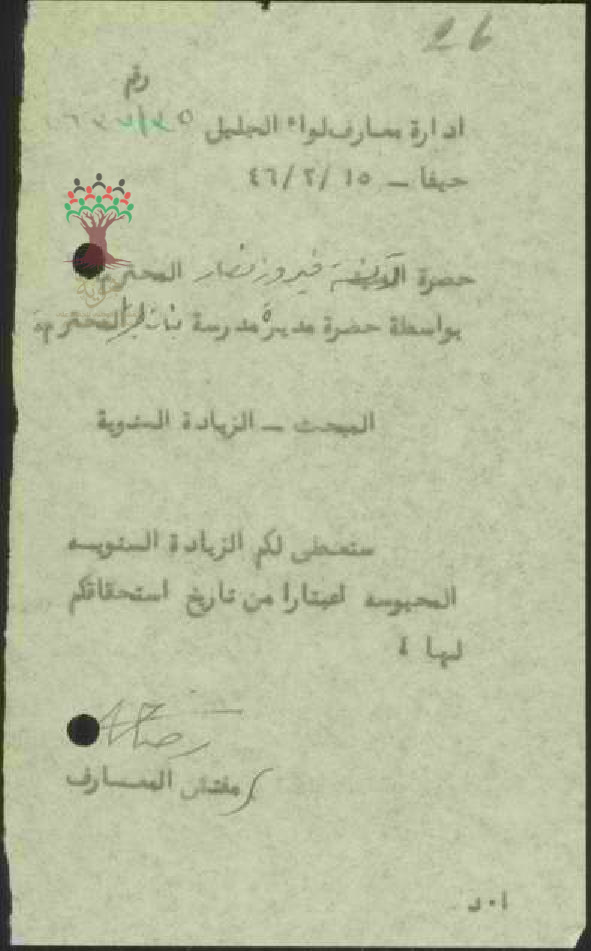 26
رقم
ادارة معارف لواء الجليل
حيفا – ١٥ /٢/ ٤٦
حضرة الآنسة فيروز نصار المحترمة
بواسطة حضرة مديرة مدرسة بنات المحترمة
المبحث – الزيادة السنوية
ستعطى لكم الزيادة السنويه
المحبوسه اعتبارا من تاريخ استحقاقكم
لها ٤
مفتش المعارف
ا٠د